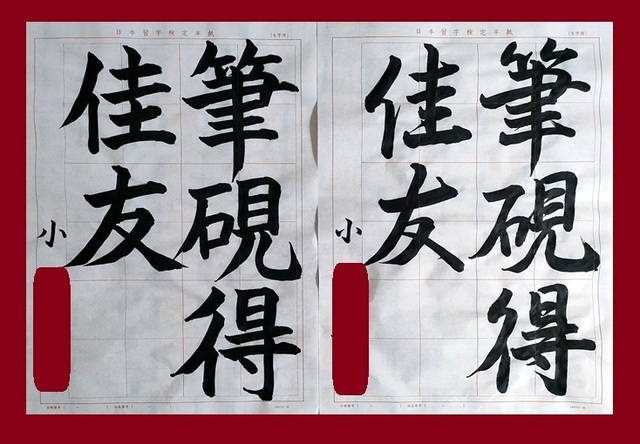 日本習字検定半紙
筆硯得
佳友
小
日本習字検定半紙
筆硯得
佳友
小